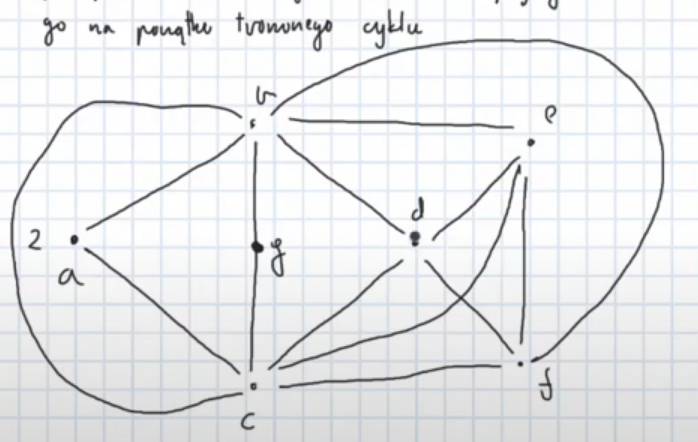 go na początku tworzonego cyklu
b
e
d
2
g
a
f
c